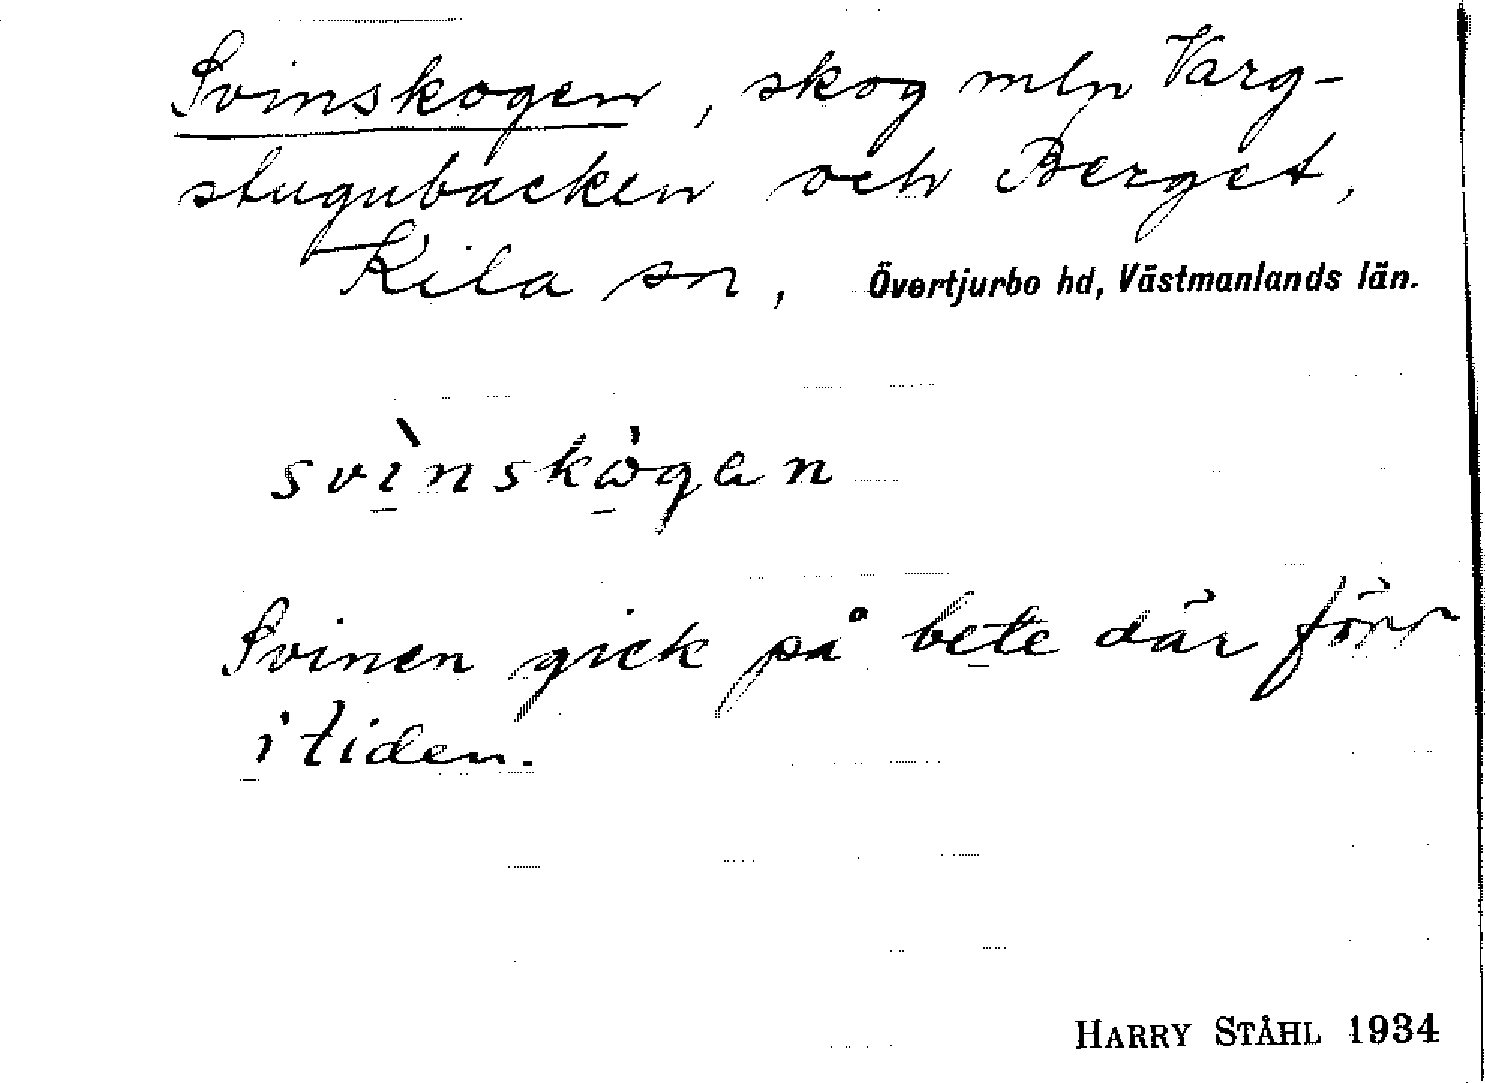 Svinskogen, skog mln Varg-
stugubacken och Berget,
Kila sn, Övertjurbo hd, Västmanlands län.
svìnskògan
Svinen gick på bete där förr
i tiden.
HARRY STÅHL 1934